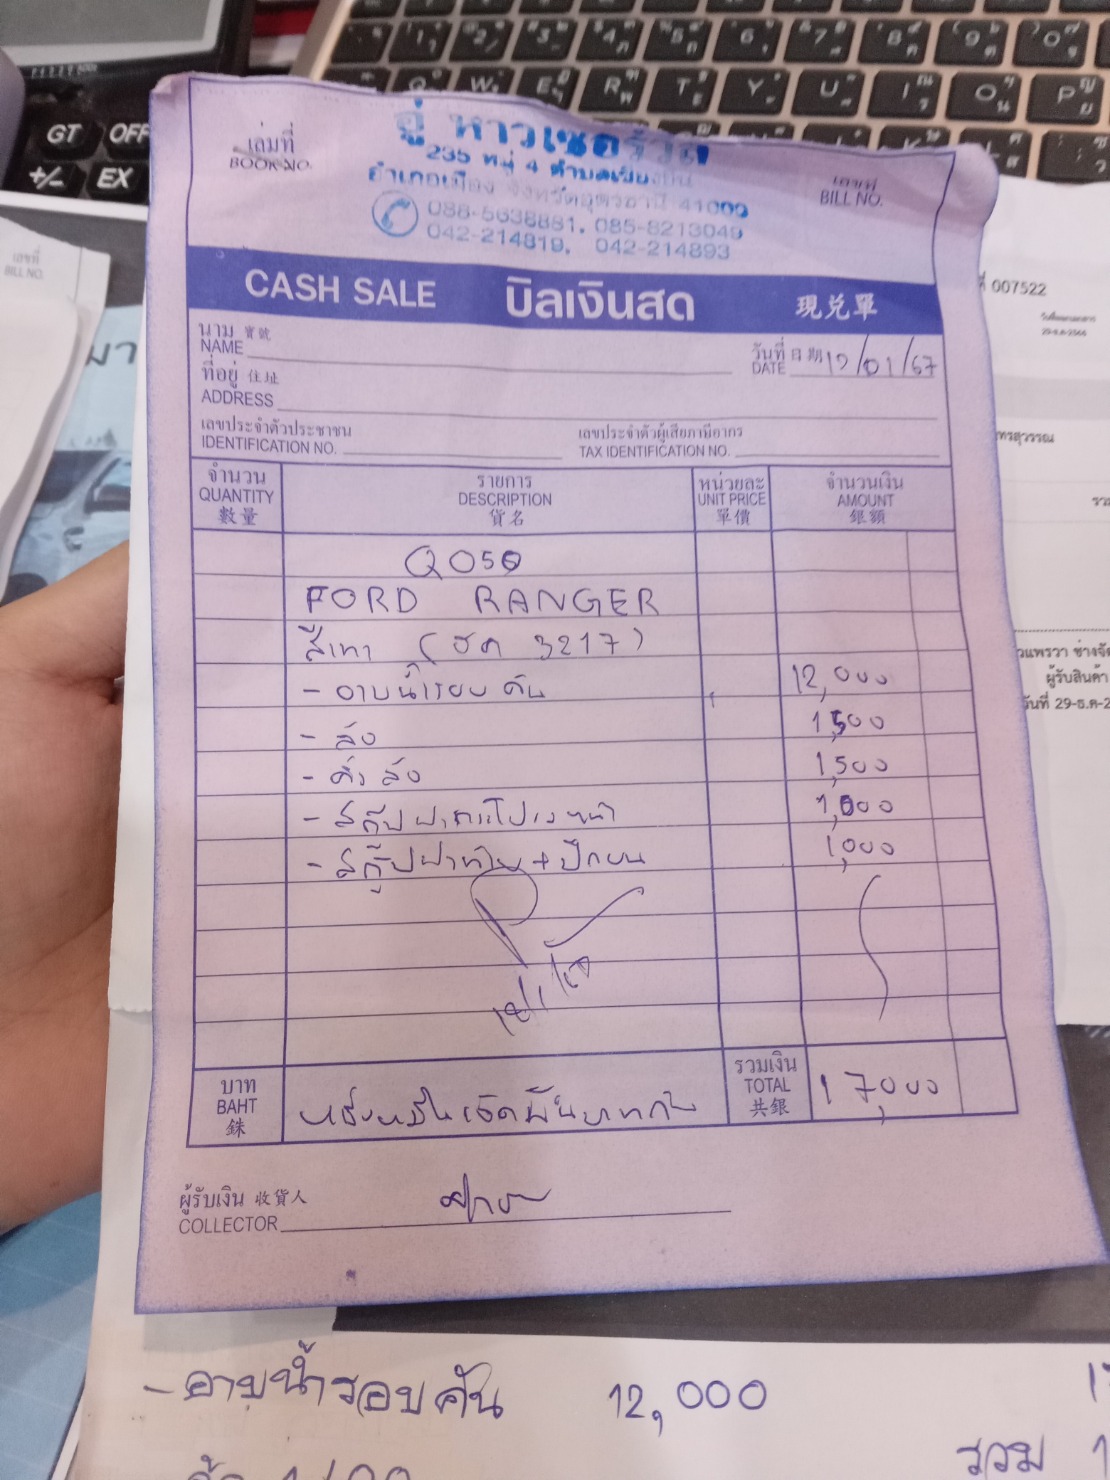 GT OFF
+/- EX
เล่มที่
BOOK NO.
อู่ หาวเซอร์วิส
235 หมู่ 4 ตำบลเชียงยืน
อำเภอเมือง จังหวัดอุดรธานี 41000
088-5638881, 085-8213049
042-214819, 042-214893
เลขที่
BILL NO.
CASH SALE บิลเงินสด 現兑單
นาม 寶號
NAME
วันที่ 日期
DATE 12/01/67
ที่อยู่ 住址
ADDRESS
เลขประจำตัวประชาชน
IDENTIFICATION NO.
เลขประจำตัวผู้เสียภาษีอากร
TAX IDENTIFICATION NO.
จำนวน
QUANTITY
數量
รายการ
DESCRIPTION
貨名
หน่วยละ
UNIT PRICE
單價
จำนวนเงิน
AMOUNT
銀額
Q050
FORD RANGER
สีเทา ( ฮค 3217)
- อาบน้ำรอบคัน 12,000
1,500
1,500
1,000
1,000
12/1/67
บาท
BAHT
銖
หนึ่งหมื่นเจ็ดพันบาทถ้วน
รวมเงิน
TOTAL
共銀
17,000
ผู้รับเงิน 收貨人
COLLECTOR
- อาบน้ำรอบคัน 12,000
รวม
เลขที่
BILL NO.
007522
29-ธ.ค-2566
ผู้รับสินค้า
วันที่ 29-ธ.ค-2